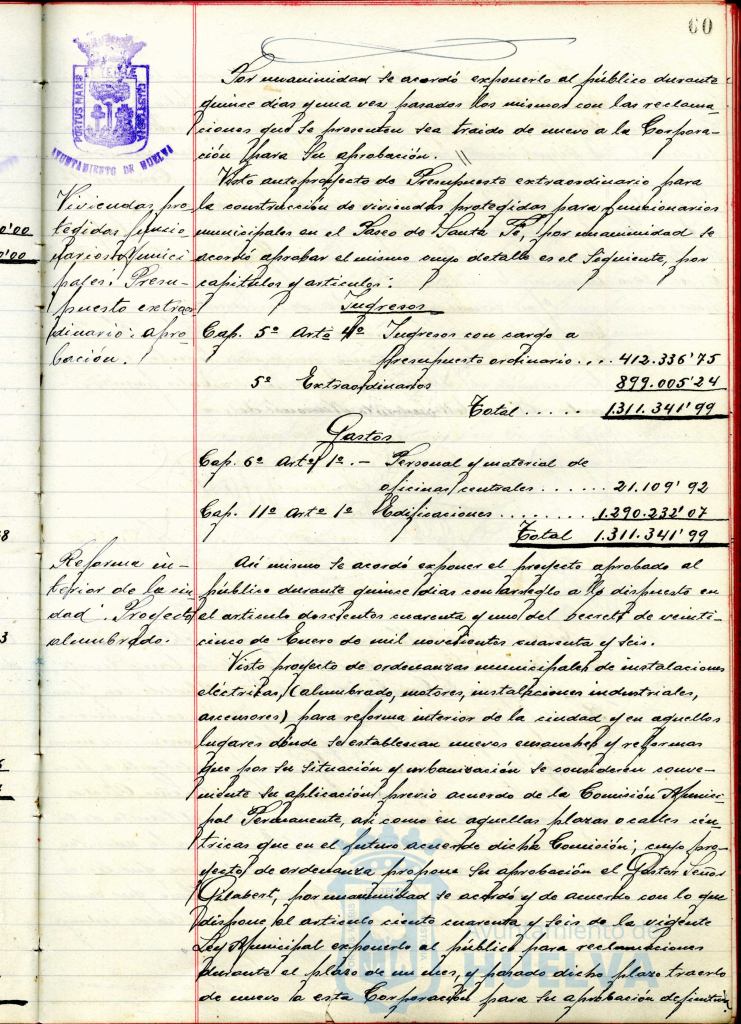 60
PORTUS MARIS
ET TERRE
CUSTODIA
AYUNTAMIENTO DE HUELVA
Por unanimidad se acordó exponerlo al público durante
quince dias y una vez pasados los mismos con las reclama-
ciones que se presenten sea traido de nuevo a la Corpora-
ción para su aprobación.
Viviendas pro-
tegidas funcio
narios Munici
pales: Presu-
puesto extraor
dinario: apro
bación.
Visto anteproyecto de Presupuesto extraordinario para
la construcción de viviendas protegidas para funcionarios
municipales en el Paseo de Santa Fe, por unanimidad se
acordó aprobar el mismo cuyo detalle es el siguiente, por
capitulos y articulos:
Ingresos
Cap. 5º Artº 4º Ingresos con cargo a
presupuesto ordinario.... 412.336'75
5º Extraordinarios 899.005'24
Total..... 1.311.341'99
Gastos
Cap. 6º Artº 1º.- Personal y material de
oficinas centrales...... 21.109'92
Cap. 11º Artº 1º Edificaciones......... 1.290.232'07
Total 1.311.341'99
Reforma in-
terior de la ciu
dad. Proyecto
alumbrado.
Asi mismo se acordó exponer el proyecto aprobado al
público durante quince dias con arreglo a lo dispuesto en
el articulo doscientos cuarenta y uno del Decreto de veinti-
cinco de Enero de mil novecientos cuarenta y seis.
Visto proyecto de ordenanzas municipales de instalaciones
eléctricas, (alumbrado, motores, instalaciones industriales,
ascensores) para reforma interior de la ciudad y en aquellos
lugares donde se establezcan nuevos ensanches y reformas
que por su situación y urbanización se consideren conve-
niente su aplicación previo acuerdo de la Comisión Munici-
pal Permanente, asi como en aquellas plazas o calles cén-
tricas que en el futuro acuerde dicha Comisión, cuyo pro-
yecto de ordenanza propone su aprobación el Gestor Señor
Gilabert, por unanimidad se acordó y de acuerdo con lo que
dispone el articulo ciento cuarenta y seis de la vigente
Ley Municipal exponerlo al público para reclamaciones
durante el plazo de un mes, y pasado dicho plazo traerlo
de nuevo a esta Corporación para su aprobación definitiva.
Ayuntamiento de
HUELVA